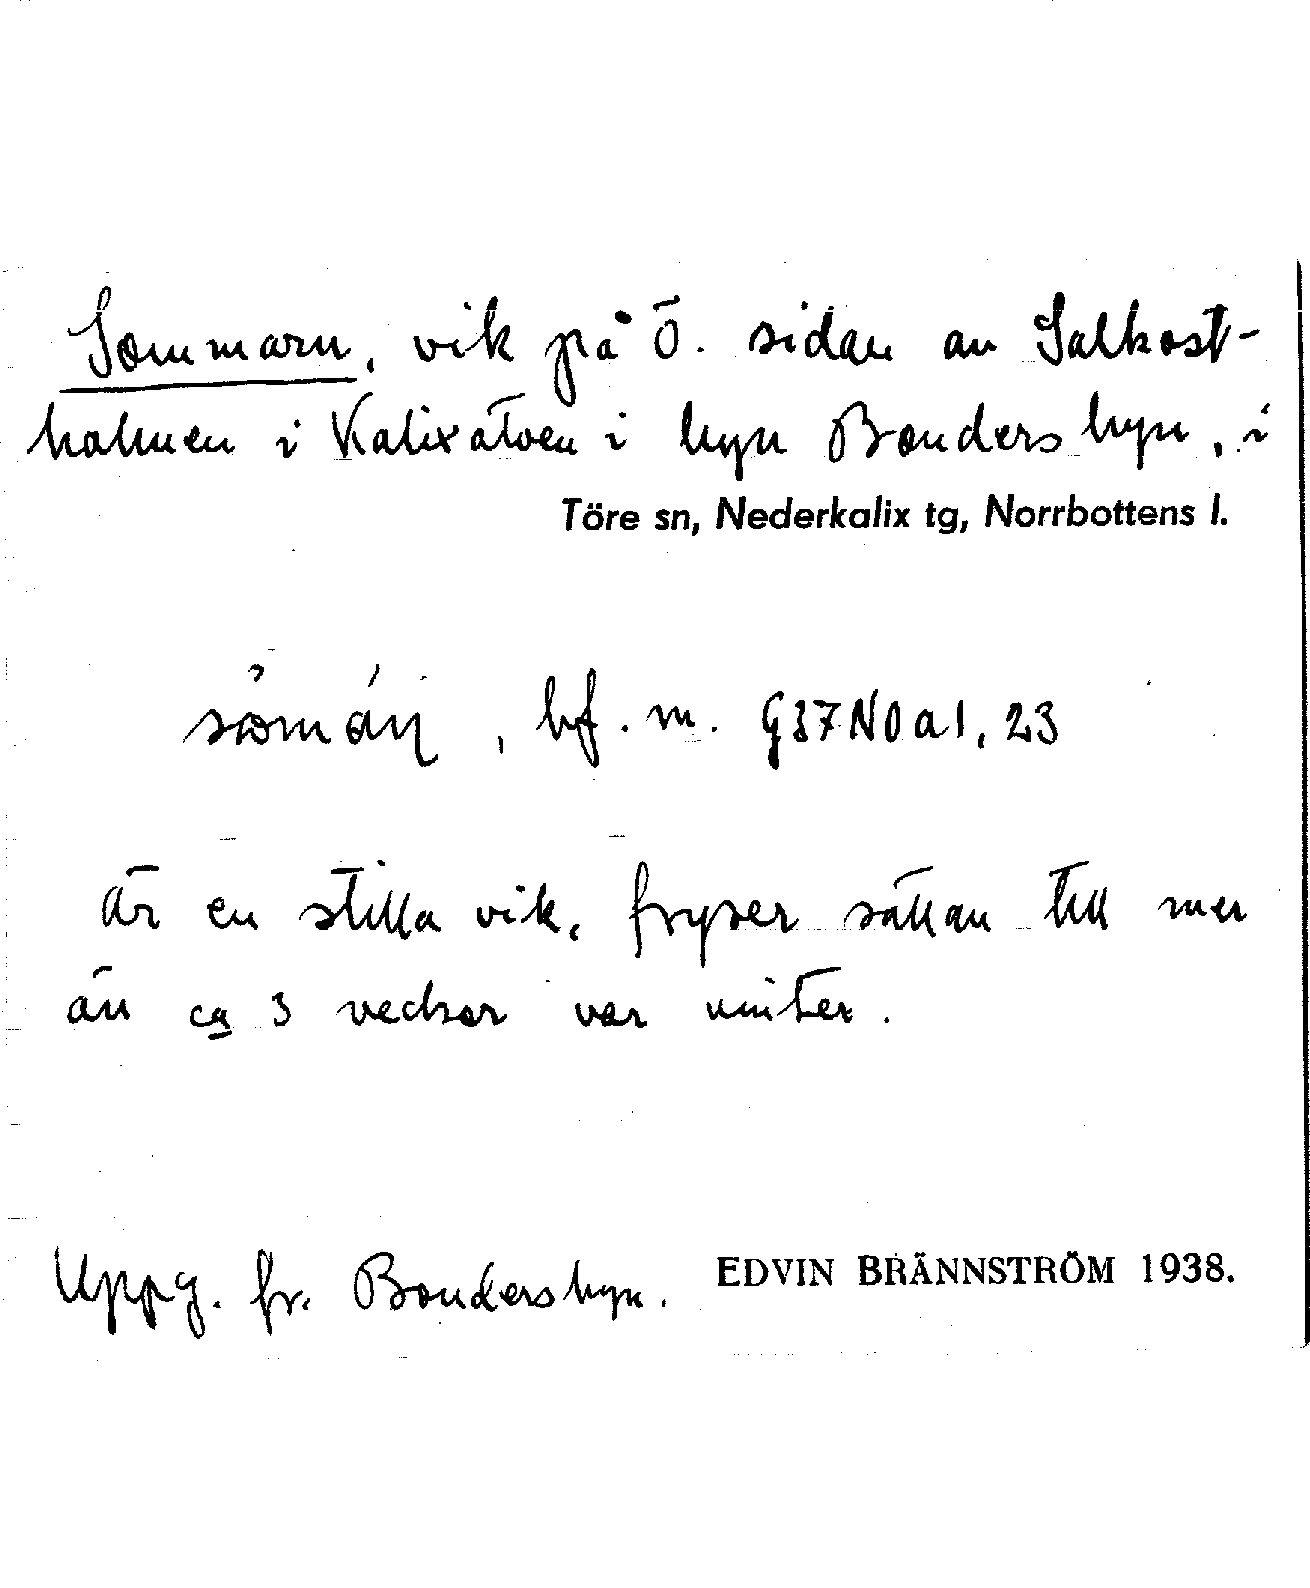 Sommarn, vik på Ö. sidan av Salkost-
holmen i Kalixälven i byn Bondersbyn, i
Töre sn, Nederkalix tg, Norrbottens l.
, bf. m. G37N0a1, 23
är en stilla vik, fryser sällan till mer
än ca 3 veckor var vinter.
Uppg. fr. Bondersbyn. EDVIN BRÄNNSTRÖM 1938.